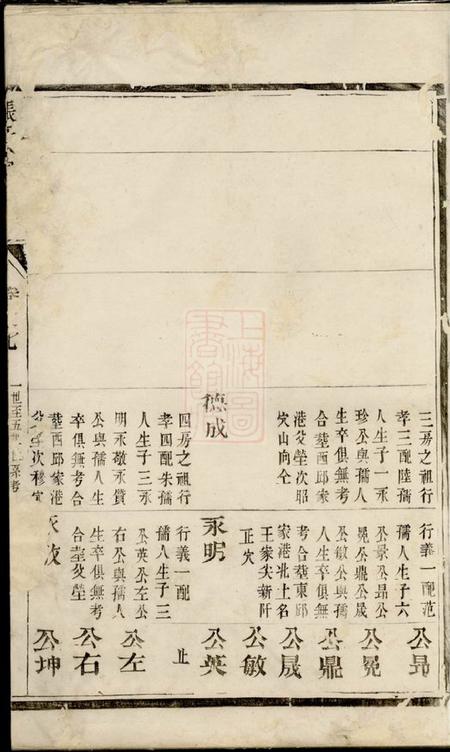 三房之祖行
孝三配陸孺
人生子一永
珍公與孺人
生卒俱無考
合塟西邱家
港父塋次昭
穴山向仝
德成
四房之祖行
孝四配朱孺
人生子三永
明永敬永賢
公與孺人生
卒俱無考合
塟西邱家港
塋次穆穴
行義一配范
孺人生子六
公景公昂公
冕公鼎公晟
公敏公與孺
人生卒俱無
考合塟東邱
家港北土名
王家尖新阡
正穴
永明
行義一配
孺人生子三
公英公左公
右公與孺人
生卒俱無考
合塟父塋
公昂
公冕
公鼎
公晟
公敏
公英
止
公左
公右
公坤
卷 七
一世至五世 系考
上海圖書館